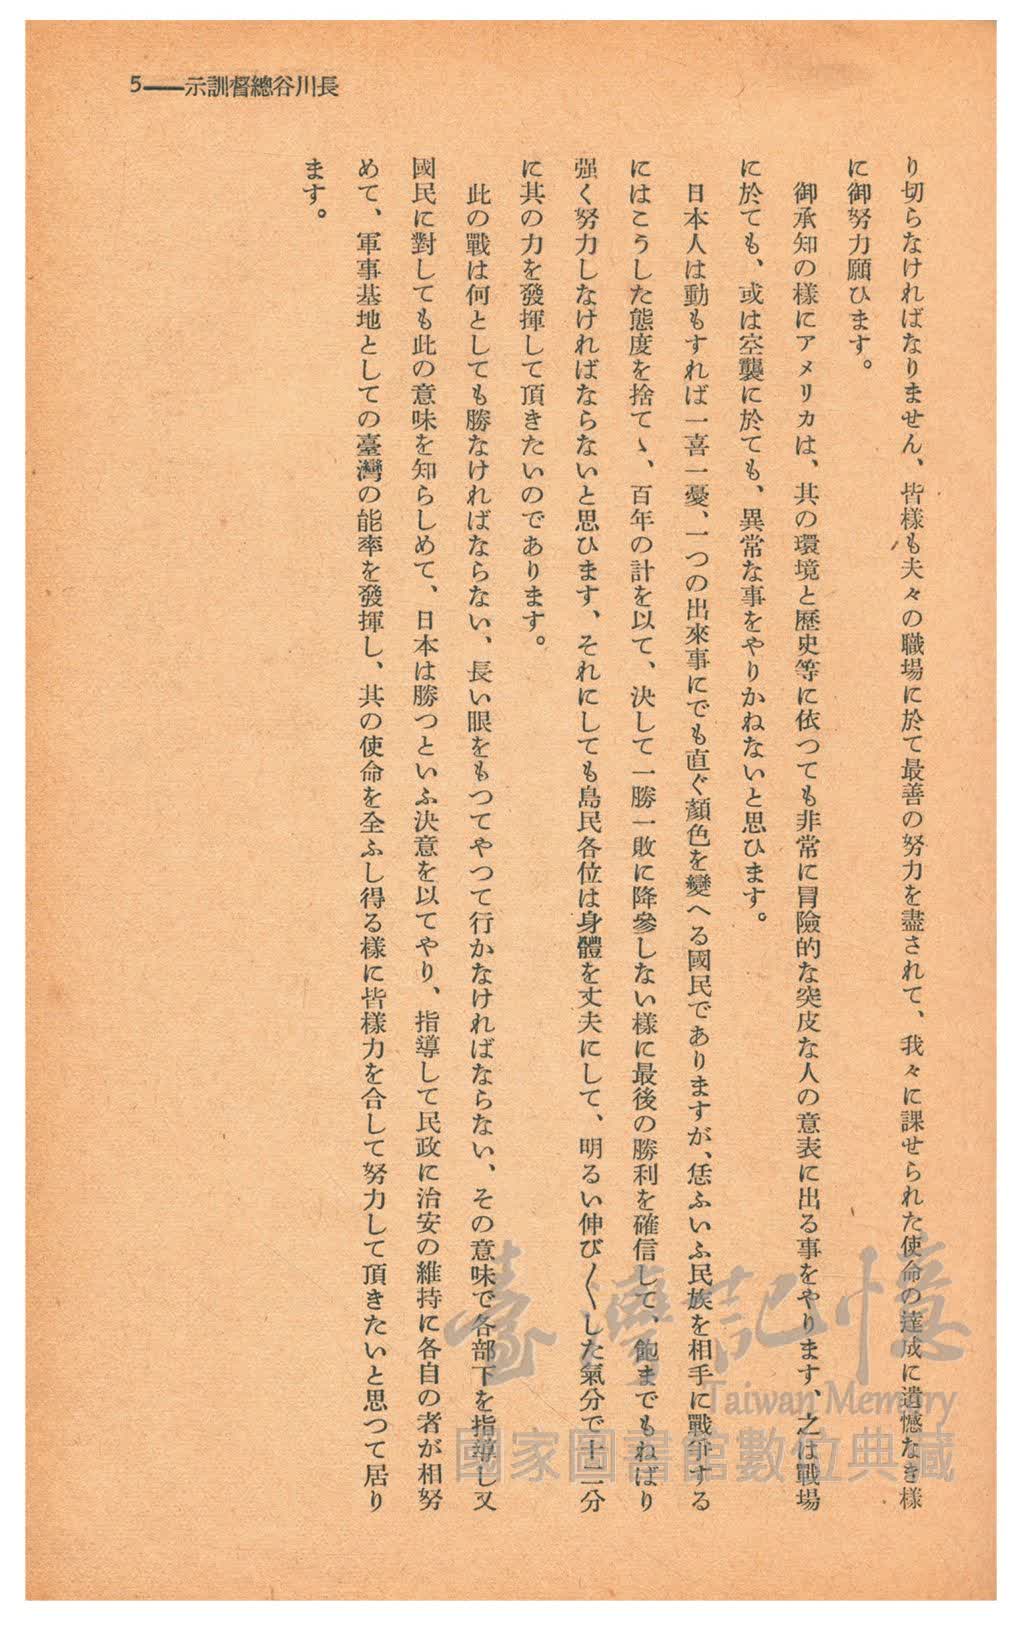 長川谷總督訓示――5
り切らなければなりません、皆樣も夫々の職場に於て最善の努力を盡されて、我々に課せられた使命の達成に遺憾なき樣
に御努力願ひます。
御承知の樣にアメリカは、其の環境と歷史等に依つても非常に冒險的な突皮な人の意表に出る事をやります、之は戰場
に於ても、或は空襲に於ても、異常な事をやりかねないと思ひます。
日本人は動もすれば一喜一憂、一つの出來事にでも直ぐ顏色を變へる國民でありますが、恁ふいふ民族を相手に戰爭する
にはこうした態度を捨てゝ、百年の計を以て、決して一勝一敗に降參しない樣に最後の勝利を確信して、飽までもねばり
强く努力しなければならないと思ひます、それにしても島民各位は身體を丈夫にして、明るい伸び〱した氣分で十二分
に其の力を發揮して頂きたいのであります。
此の戰は何としても勝なければならない、長い眼をもつてやつて行かなければならない、その意味で各部下を指導し又
國民に對しても此の意味を知らしめて、日本は勝つといふ決意を以てやり、指導して民政に治安の維持に各自の者が相努
めて、軍事基地としての臺灣の能率を發揮し、其の使命を全ふし得る樣に皆樣力を合して努力して頂きたいと思つて居り
ます。
臺灣記憶
Taiwan Memory
國家圖書館數位典藏